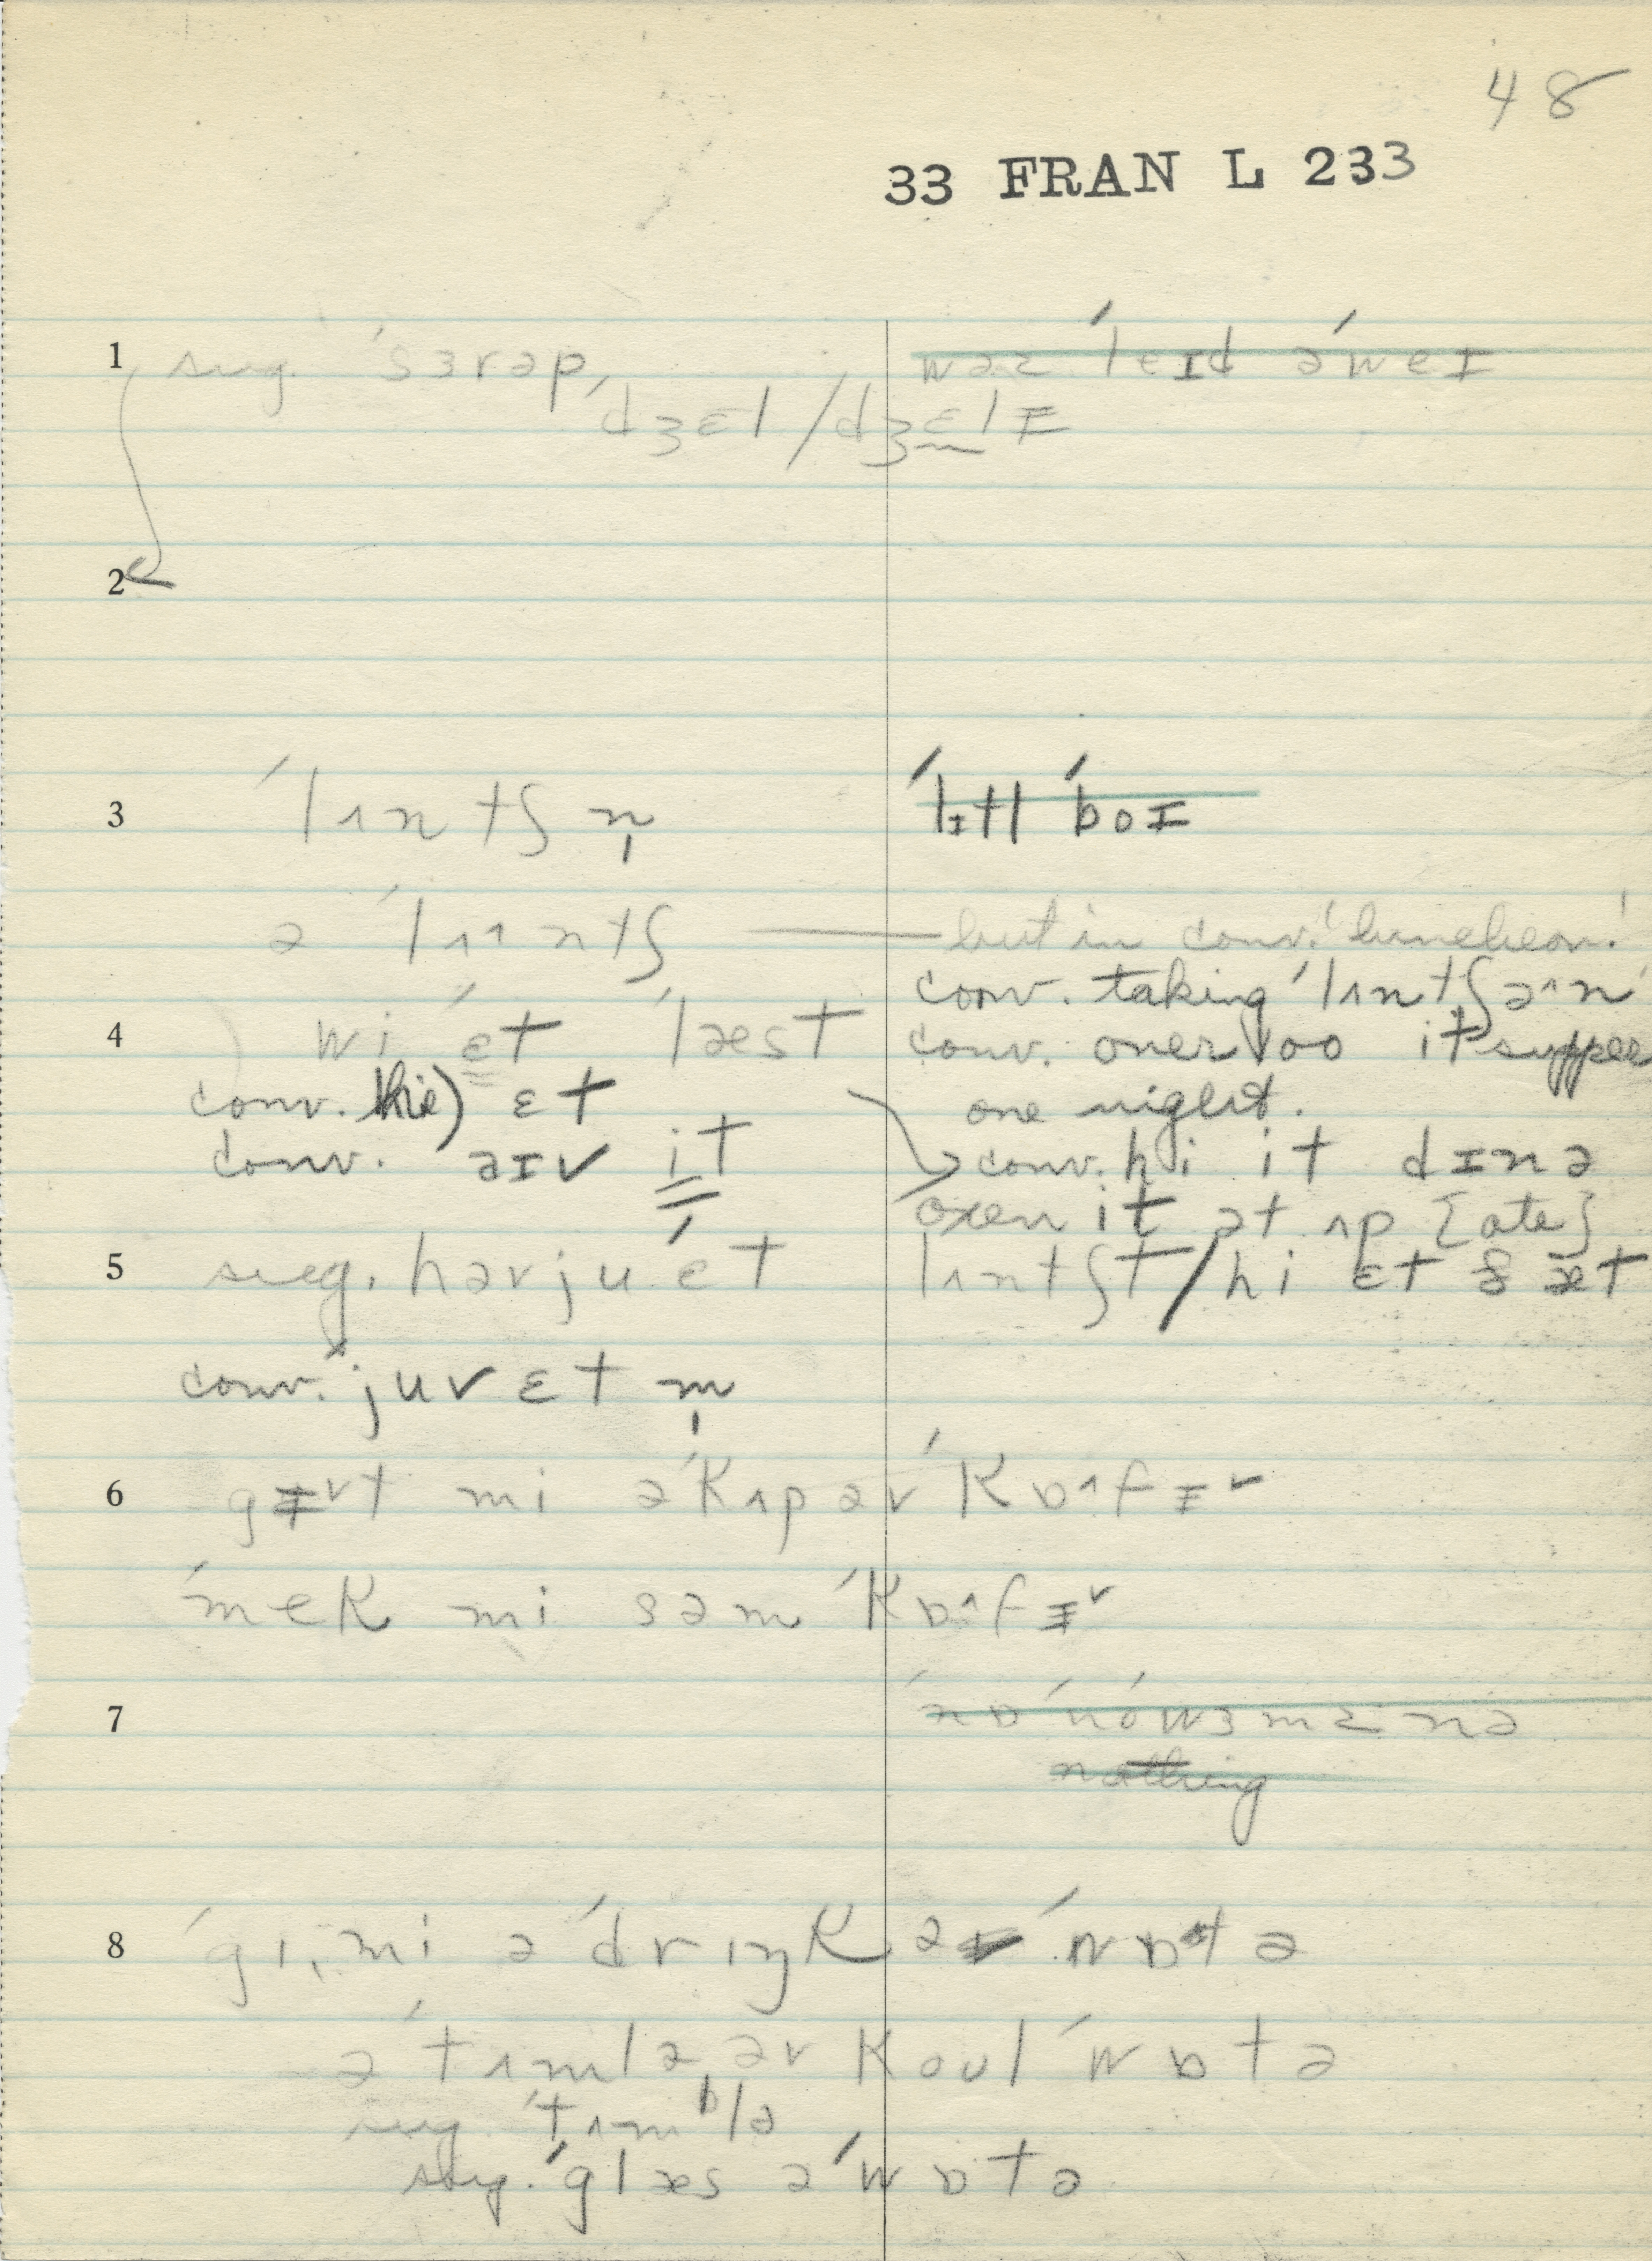 48
33 FRAN L 233
1 sug. ˈsɜrəp, wəz ˈleɪd əˈweɪ
dʒɛl/dʒɛlɪ
2
3 ˈlʌntʃn̩ ˈlɪtl ˈbɔɪ
ə ˈlʌntʃ — but in conv. 'luncheon'
conv. taking ˈlʌntʃən
4 wi ˈɛt ˈlæst conv. oner oo it supper
conv. (hi) ɛt one night.
conv. əɪv it conv. hi it dɪnə
oxen it ət ʌp {ate}
5 sug. həvjuˈet lʌntʃt/hi ɛt ðæt
conv. juv ɛt m̩
6 gɪt mi əˈkʌpəvˈkɒfɪ
ˈmek mi səm ˈkɒfɪ
7
nothing
8 ˈgɪ, mi əˈdrɪŋk əv ˈwɒtə
əˈtʌmlə, əv koulˈwɒtə
sug. ˈtʌmblə
sug. ˈglæs əˈwɒtə